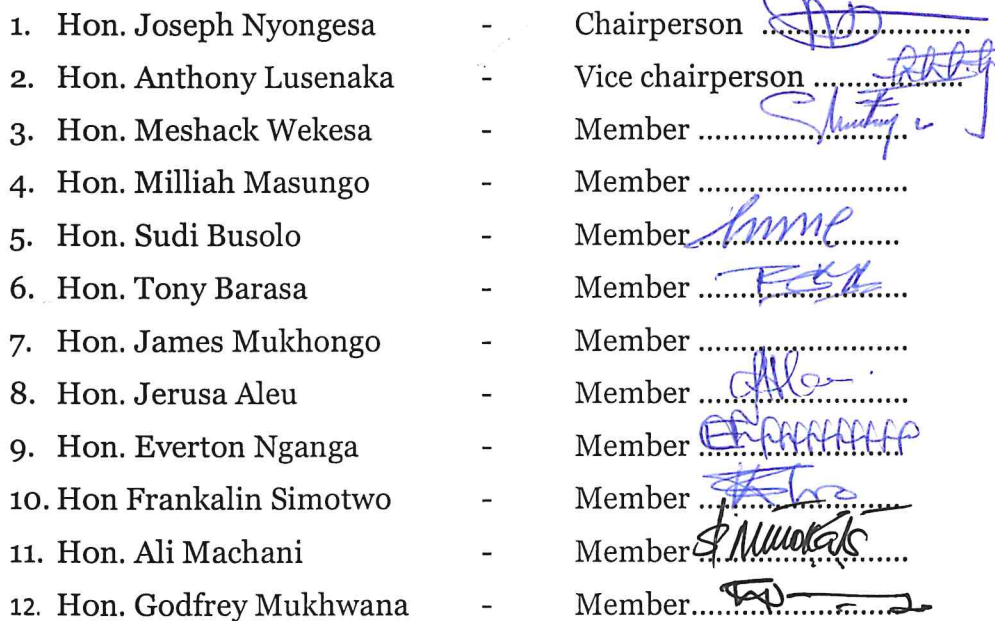 1. Hon. Joseph Nyongesa - Chairperson ......................
2. Hon. Anthony Lusenaka - Vice chairperson ................
3. Hon. Meshack Wekesa - Member .......................
4. Hon. Milliah Masungo - Member .......................
5. Hon. Sudi Busolo - Member.......................
6. Hon. Tony Barasa - Member .......................
7. Hon. James Mukhongo - Member .......................
8. Hon. Jerusa Aleu - Member .......................
9. Hon. Everton Nganga - Member .......................
10. Hon Frankalin Simotwo - Member .......................
11. Hon. Ali Machani - Member.......................
12. Hon. Godfrey Mukhwana - Member.......................